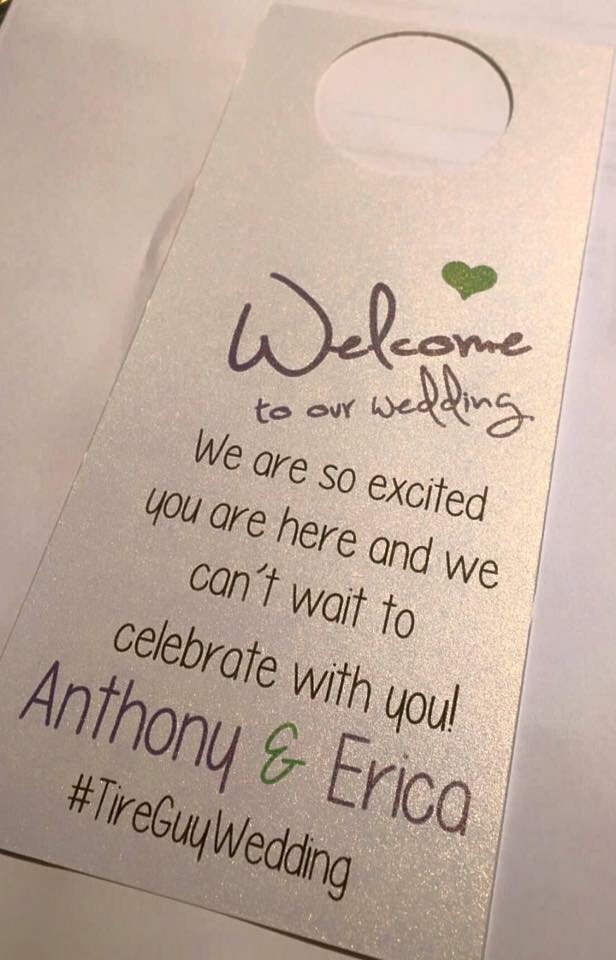 Welcome
to our wedding
We are so excited
you are here and we
can't wait to
celebrate with you!
Anthony & Erica
#TireGuyWedding